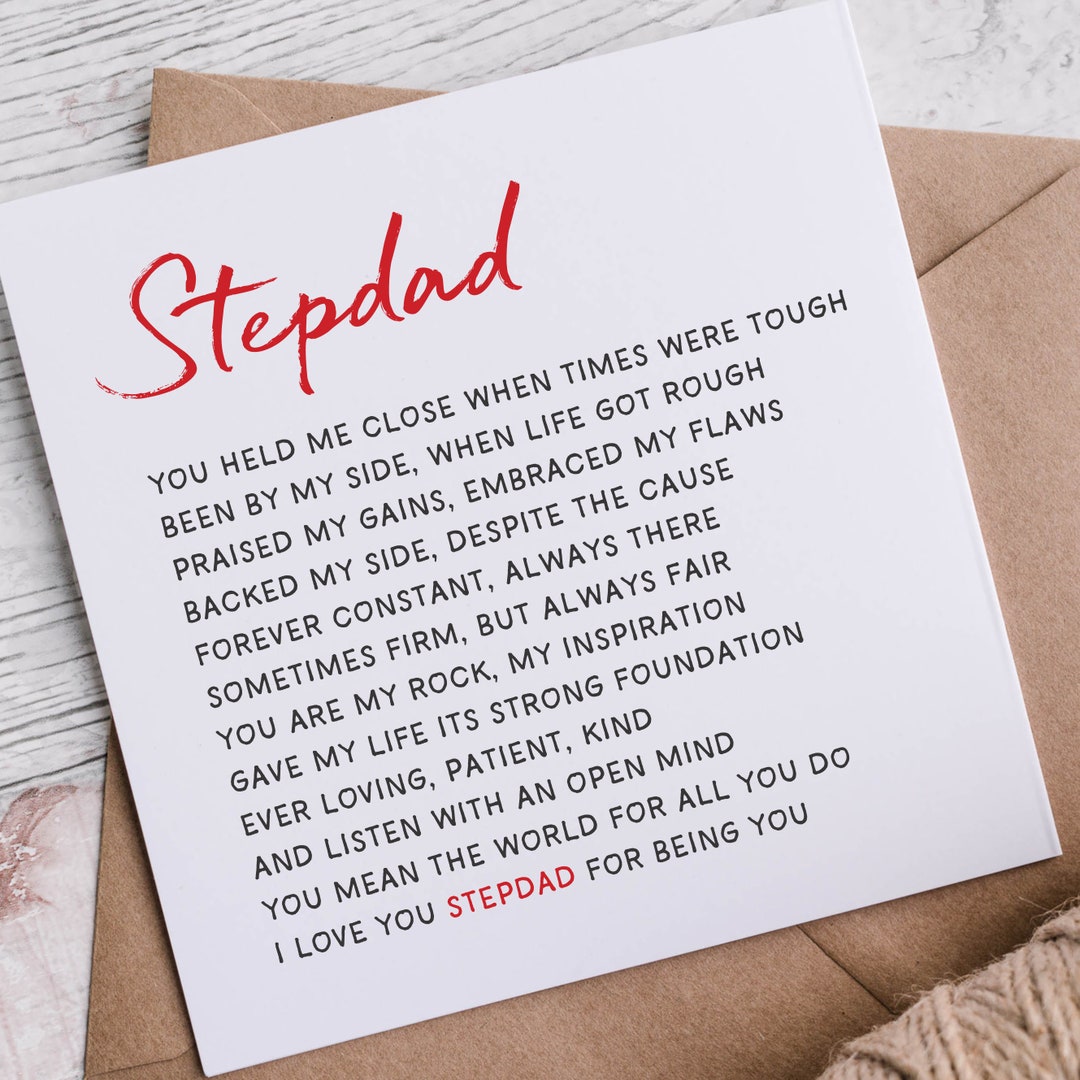 Stepdad
YOU HELD ME CLOSE WHEN TIMES WERE TOUGH
BEEN BY MY SIDE, WHEN LIFE GOT ROUGH
PRAISED MY GAINS, EMBRACED MY FLAWS
BACKED MY SIDE, DESPITE THE CAUSE
FOREVER CONSTANT, ALWAYS THERE
SOMETIMES FIRM, BUT ALWAYS FAIR
YOU ARE MY ROCK, MY INSPIRATION
GAVE MY LIFE ITS STRONG FOUNDATION
EVER LOVING, PATIENT, KIND
AND LISTEN WITH AN OPEN MIND
YOU MEAN THE WORLD FOR ALL YOU DO
I LOVE YOU STEPDAD FOR BEING YOU